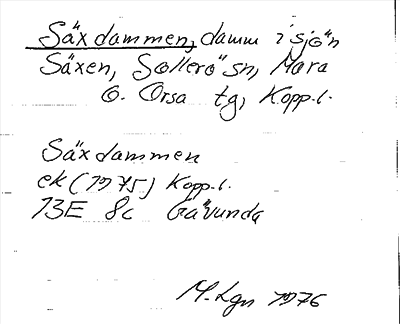 Säxdammen, damm i sjön
Säxen, Sollerö sn, Mora
o. Orsa tg, Kopp.l.
Säxdammen
ek (1975) Kopp.l.
13E 8c Gävunda
M.Lgn 1976